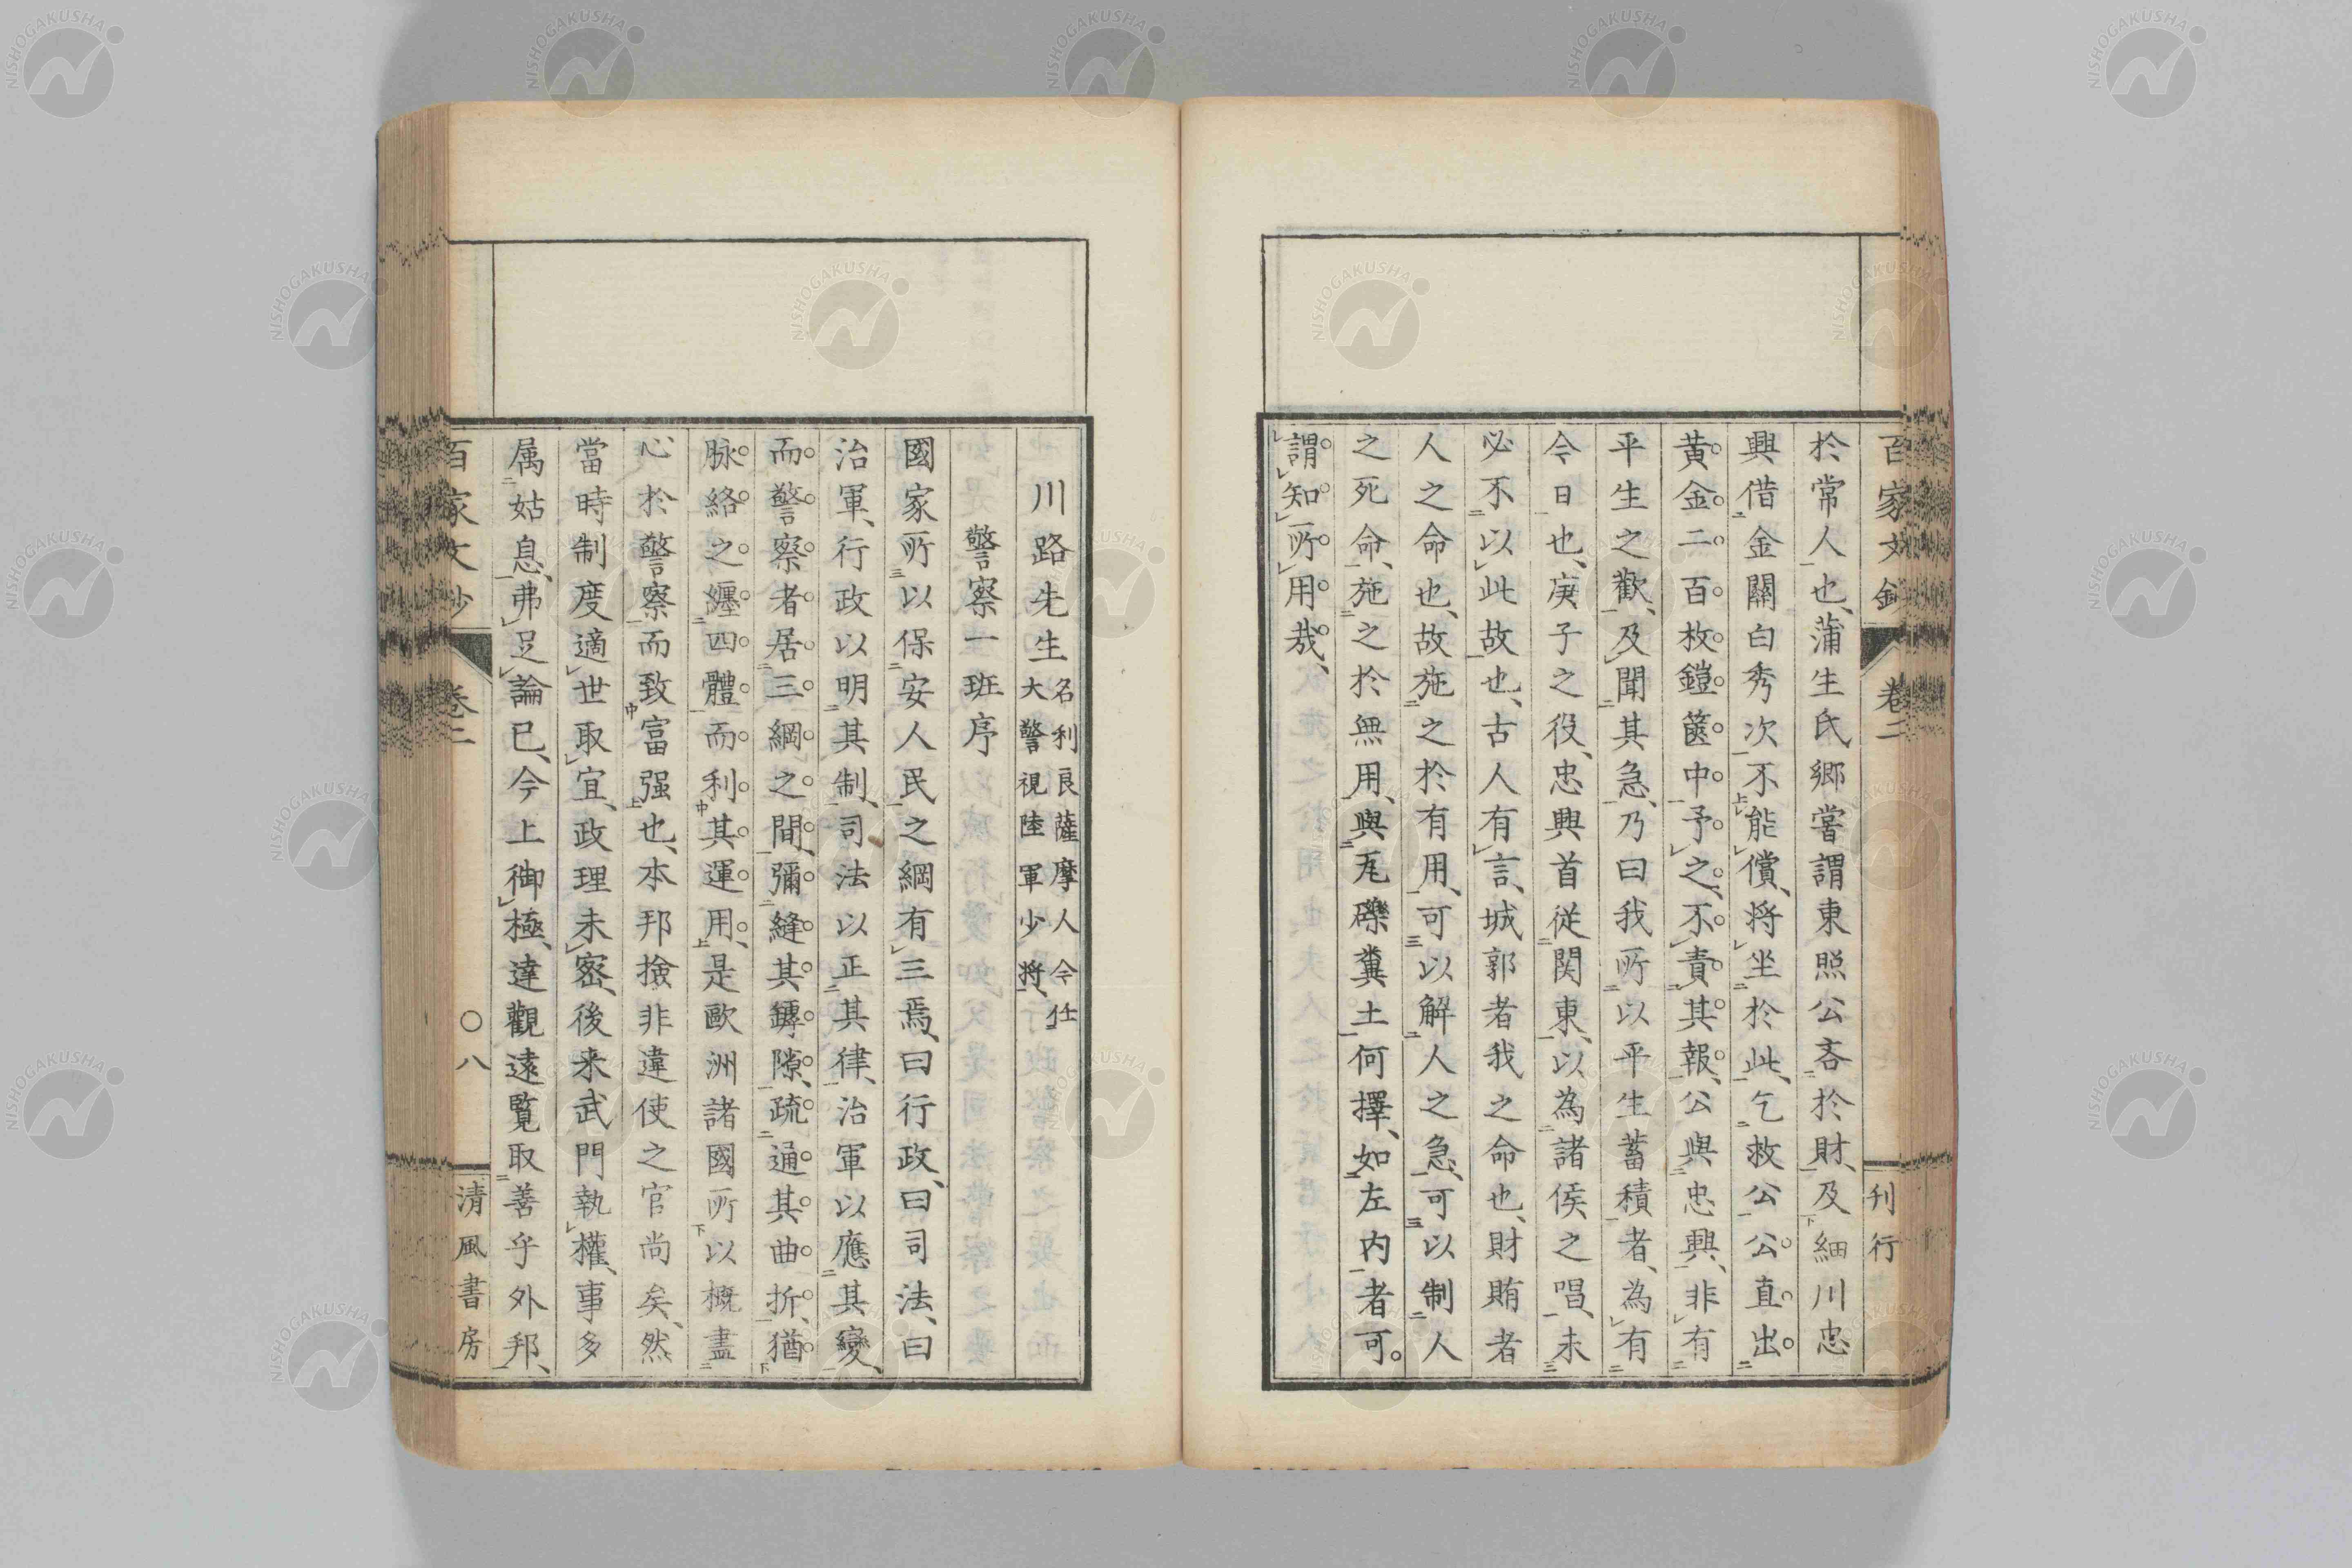 百家文鈔 卷二 刊行
於常人也、蒲生氏鄉嘗謂東照公吝於財、及細川忠
興借金關白秀次不能償、將坐於此、乞救公公直出
黃金二百枚鎧篋中予之、不責其報、公與忠興、非有
平生之歡、及聞其急、乃曰我所以平生蓄積者、為有
今日也、庚子之役、忠興首從関東、以為諸侯之唱、未
必不以此故也、古人有言、城郭者我之命也、財賄者
人之命也、故施之於有用、可以解人之急、可以制人
之死命、施之於無用、與瓦礫糞土何擇、如左內者可
謂知所用哉、
川路先生 名利良薩摩人今任大警視陸軍少將、
警察一班序
國家所以保安人民之綱有三焉、曰行政、曰司法、曰
治軍、行政以明其制、司法以正其律、治軍以應其變、
而警察者居三綱之間、彌縫其罅隙、疏通其曲折、猶
脉絡之纏四體而利其運用、是歐洲諸國所以概盡
心於警察而致富强也、本邦撿非違使之官尚矣、然
當時制度適世取宜、政理未密、後来武門執權、事多
属姑息、弗足論已、今上御極、達觀遠覧取善乎外邦、
百家文鈔 卷二 〇八 清風書房
NISHOGAKUSHA